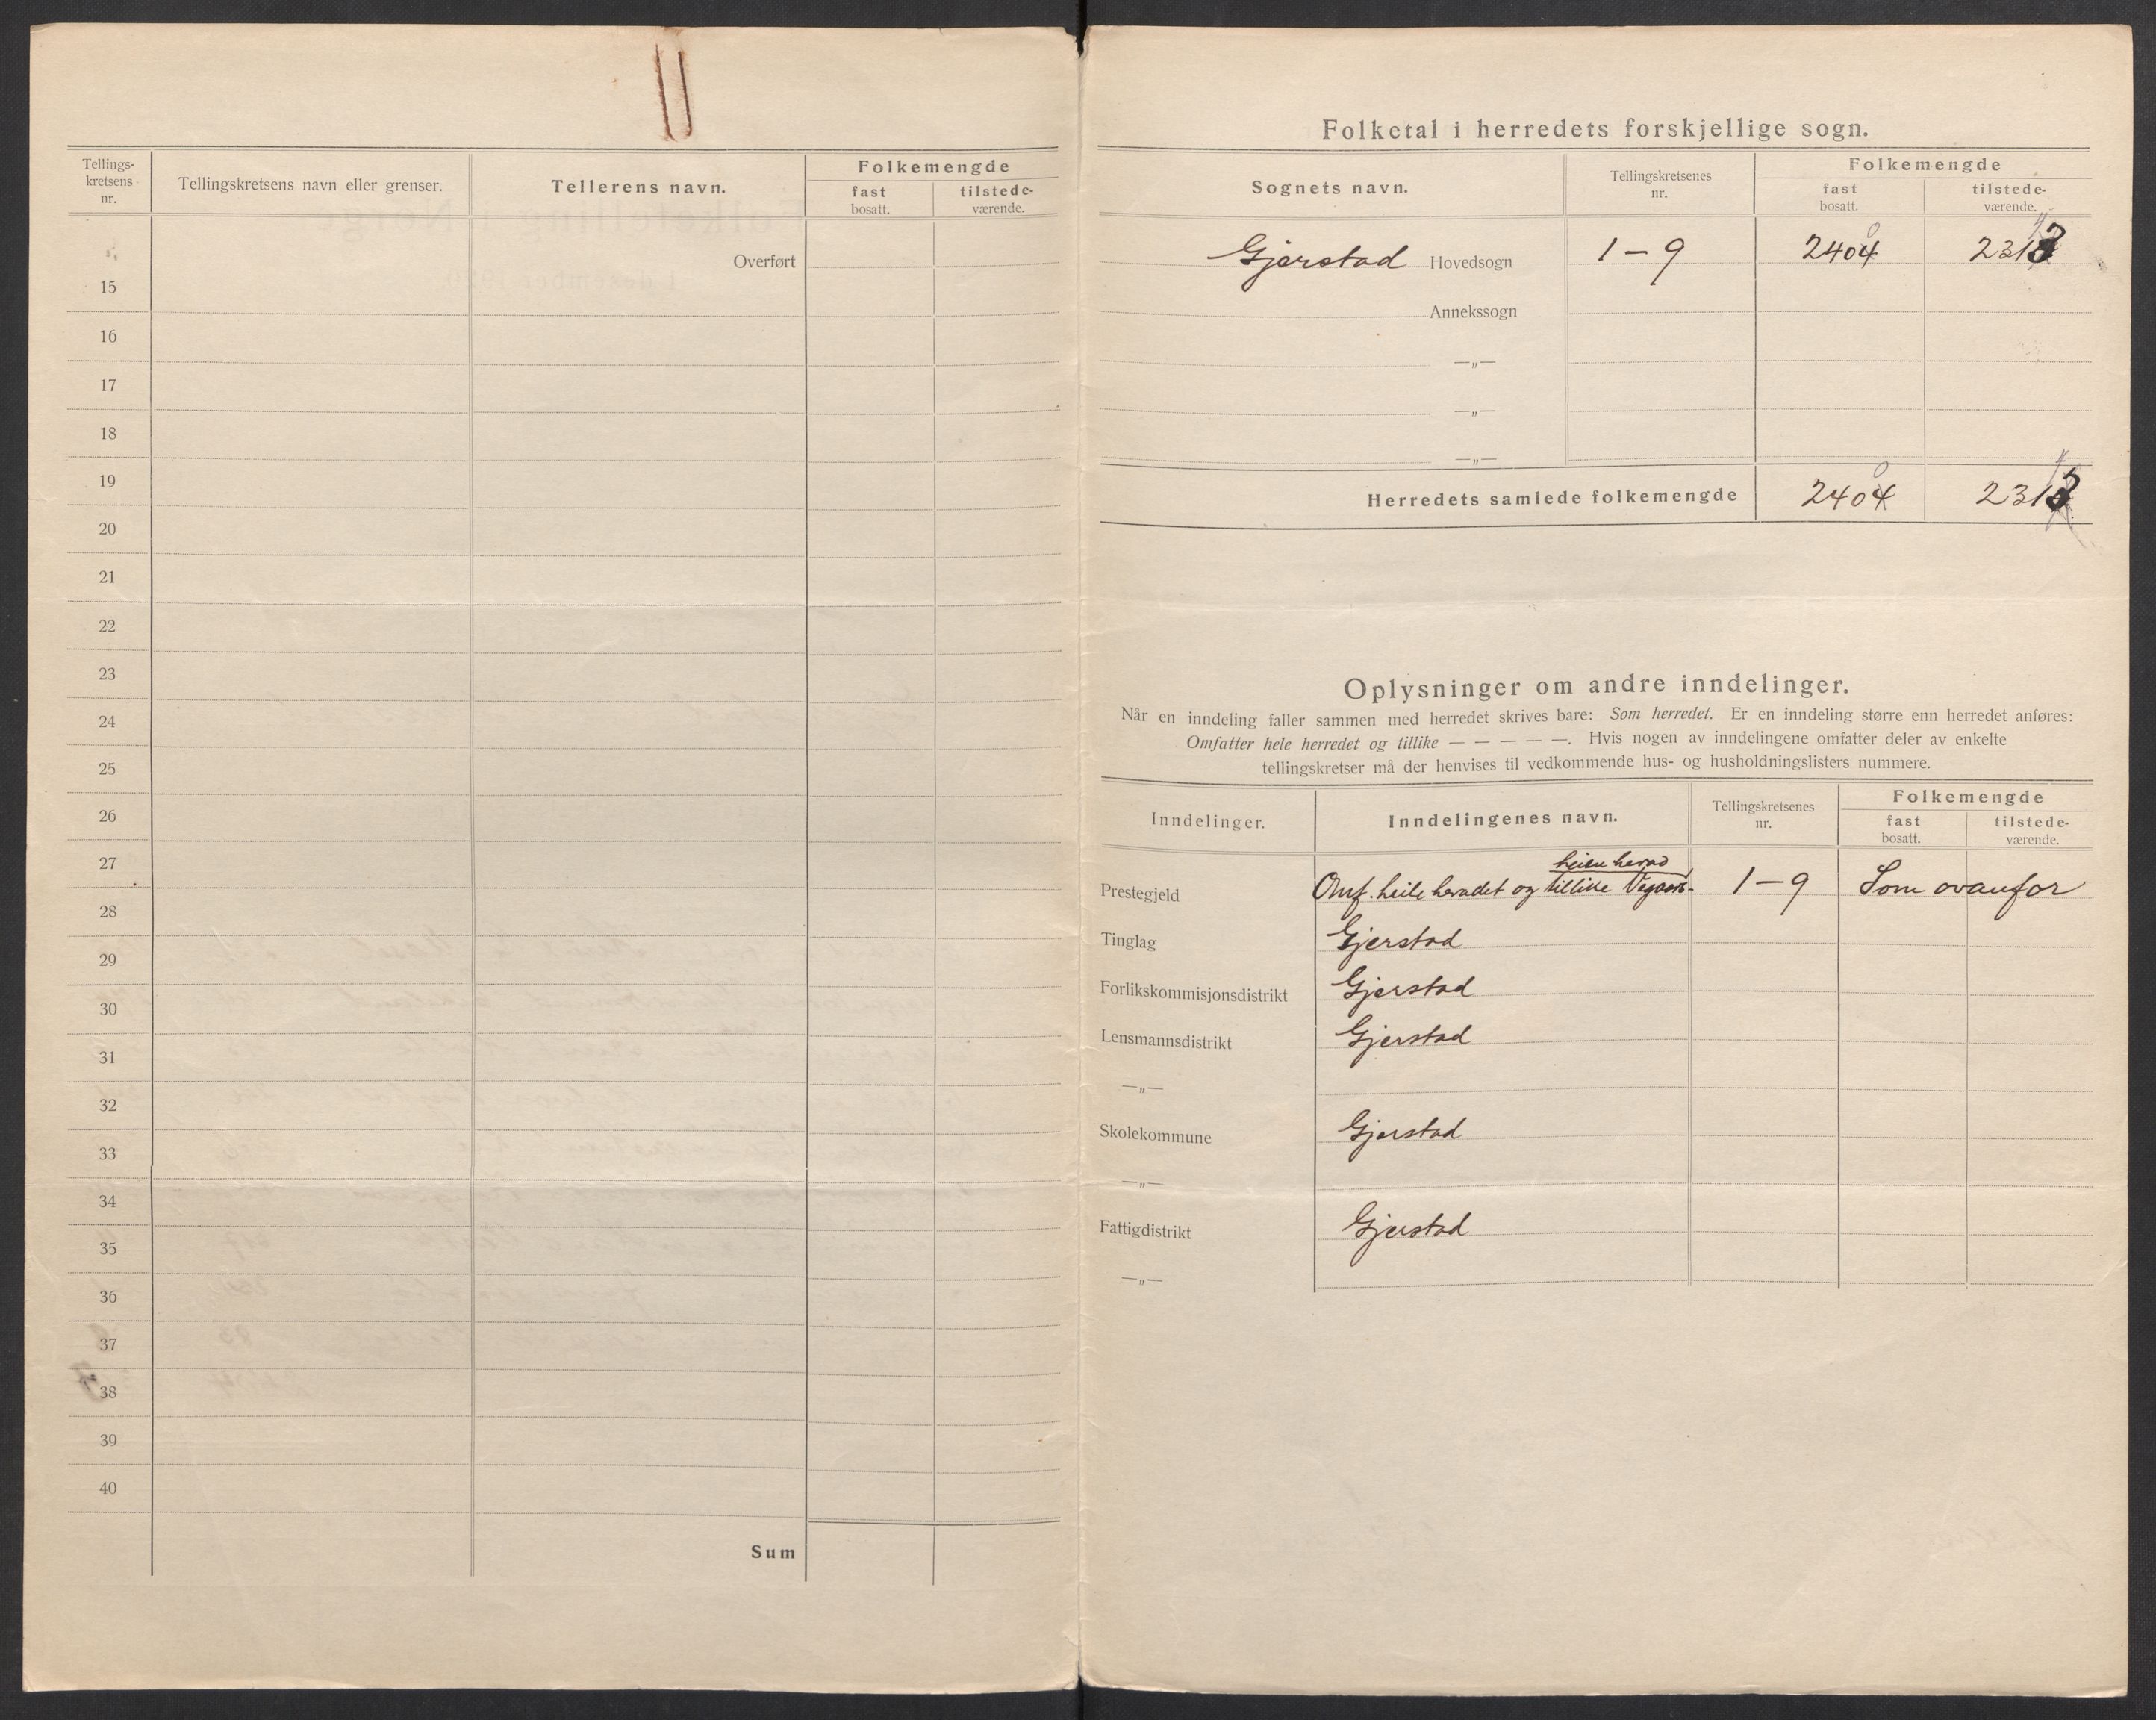 Tellings-
kretsens
nr.
Tellingskretsens navn eller grenser.
Tellerens navn.
Folkemengde
fast
bosatt.
tilstede-
værende.
Overført
15
16
17
18
19
20
21
22
23
24
25
26
27
28
29
30
31
32
33
34
35
36
37
38
39
40
Sum
Folketal i herredets forskjellige sogn.
Sognets navn.
Tellingskretsenes
nr.
Folkemengde
fast
bosatt.
tilstede-
værende.
Gjerstad Hovedsogn 1 – 9 2404
Annekssogn
—„—
—„—
—„—
Herredets samlede folkemengde 2404
Oplysninger om andre inndelinger.
Når en inndeling faller sammen med herredet skrives bare: Som herredet. Er en inndeling større enn herredet anføres:
Omfatter hele herredet og tillike — — — — —. Hvis nogen av inndelingene omfatter deler av enkelte
tellingskretser må der henvises til vedkommende hus- og husholdningslisters nummere.
Inndelinger.
Inndelingenes navn.
Tellingskretsenes
nr.
Folkemengde
fast
bosatt.
tilstede-
værende.
Prestegjeld Omf. heile heradet og tillike 1 – 9 Som ovanfor
Tinglag Gjerstad
Forlikskommisjonsdistrikt Gjerstad
Lensmannsdistrikt Gjerstad
—„—
Skolekommune Gjerstad
—„—
Fattigdistrikt Gjerstad
—„—